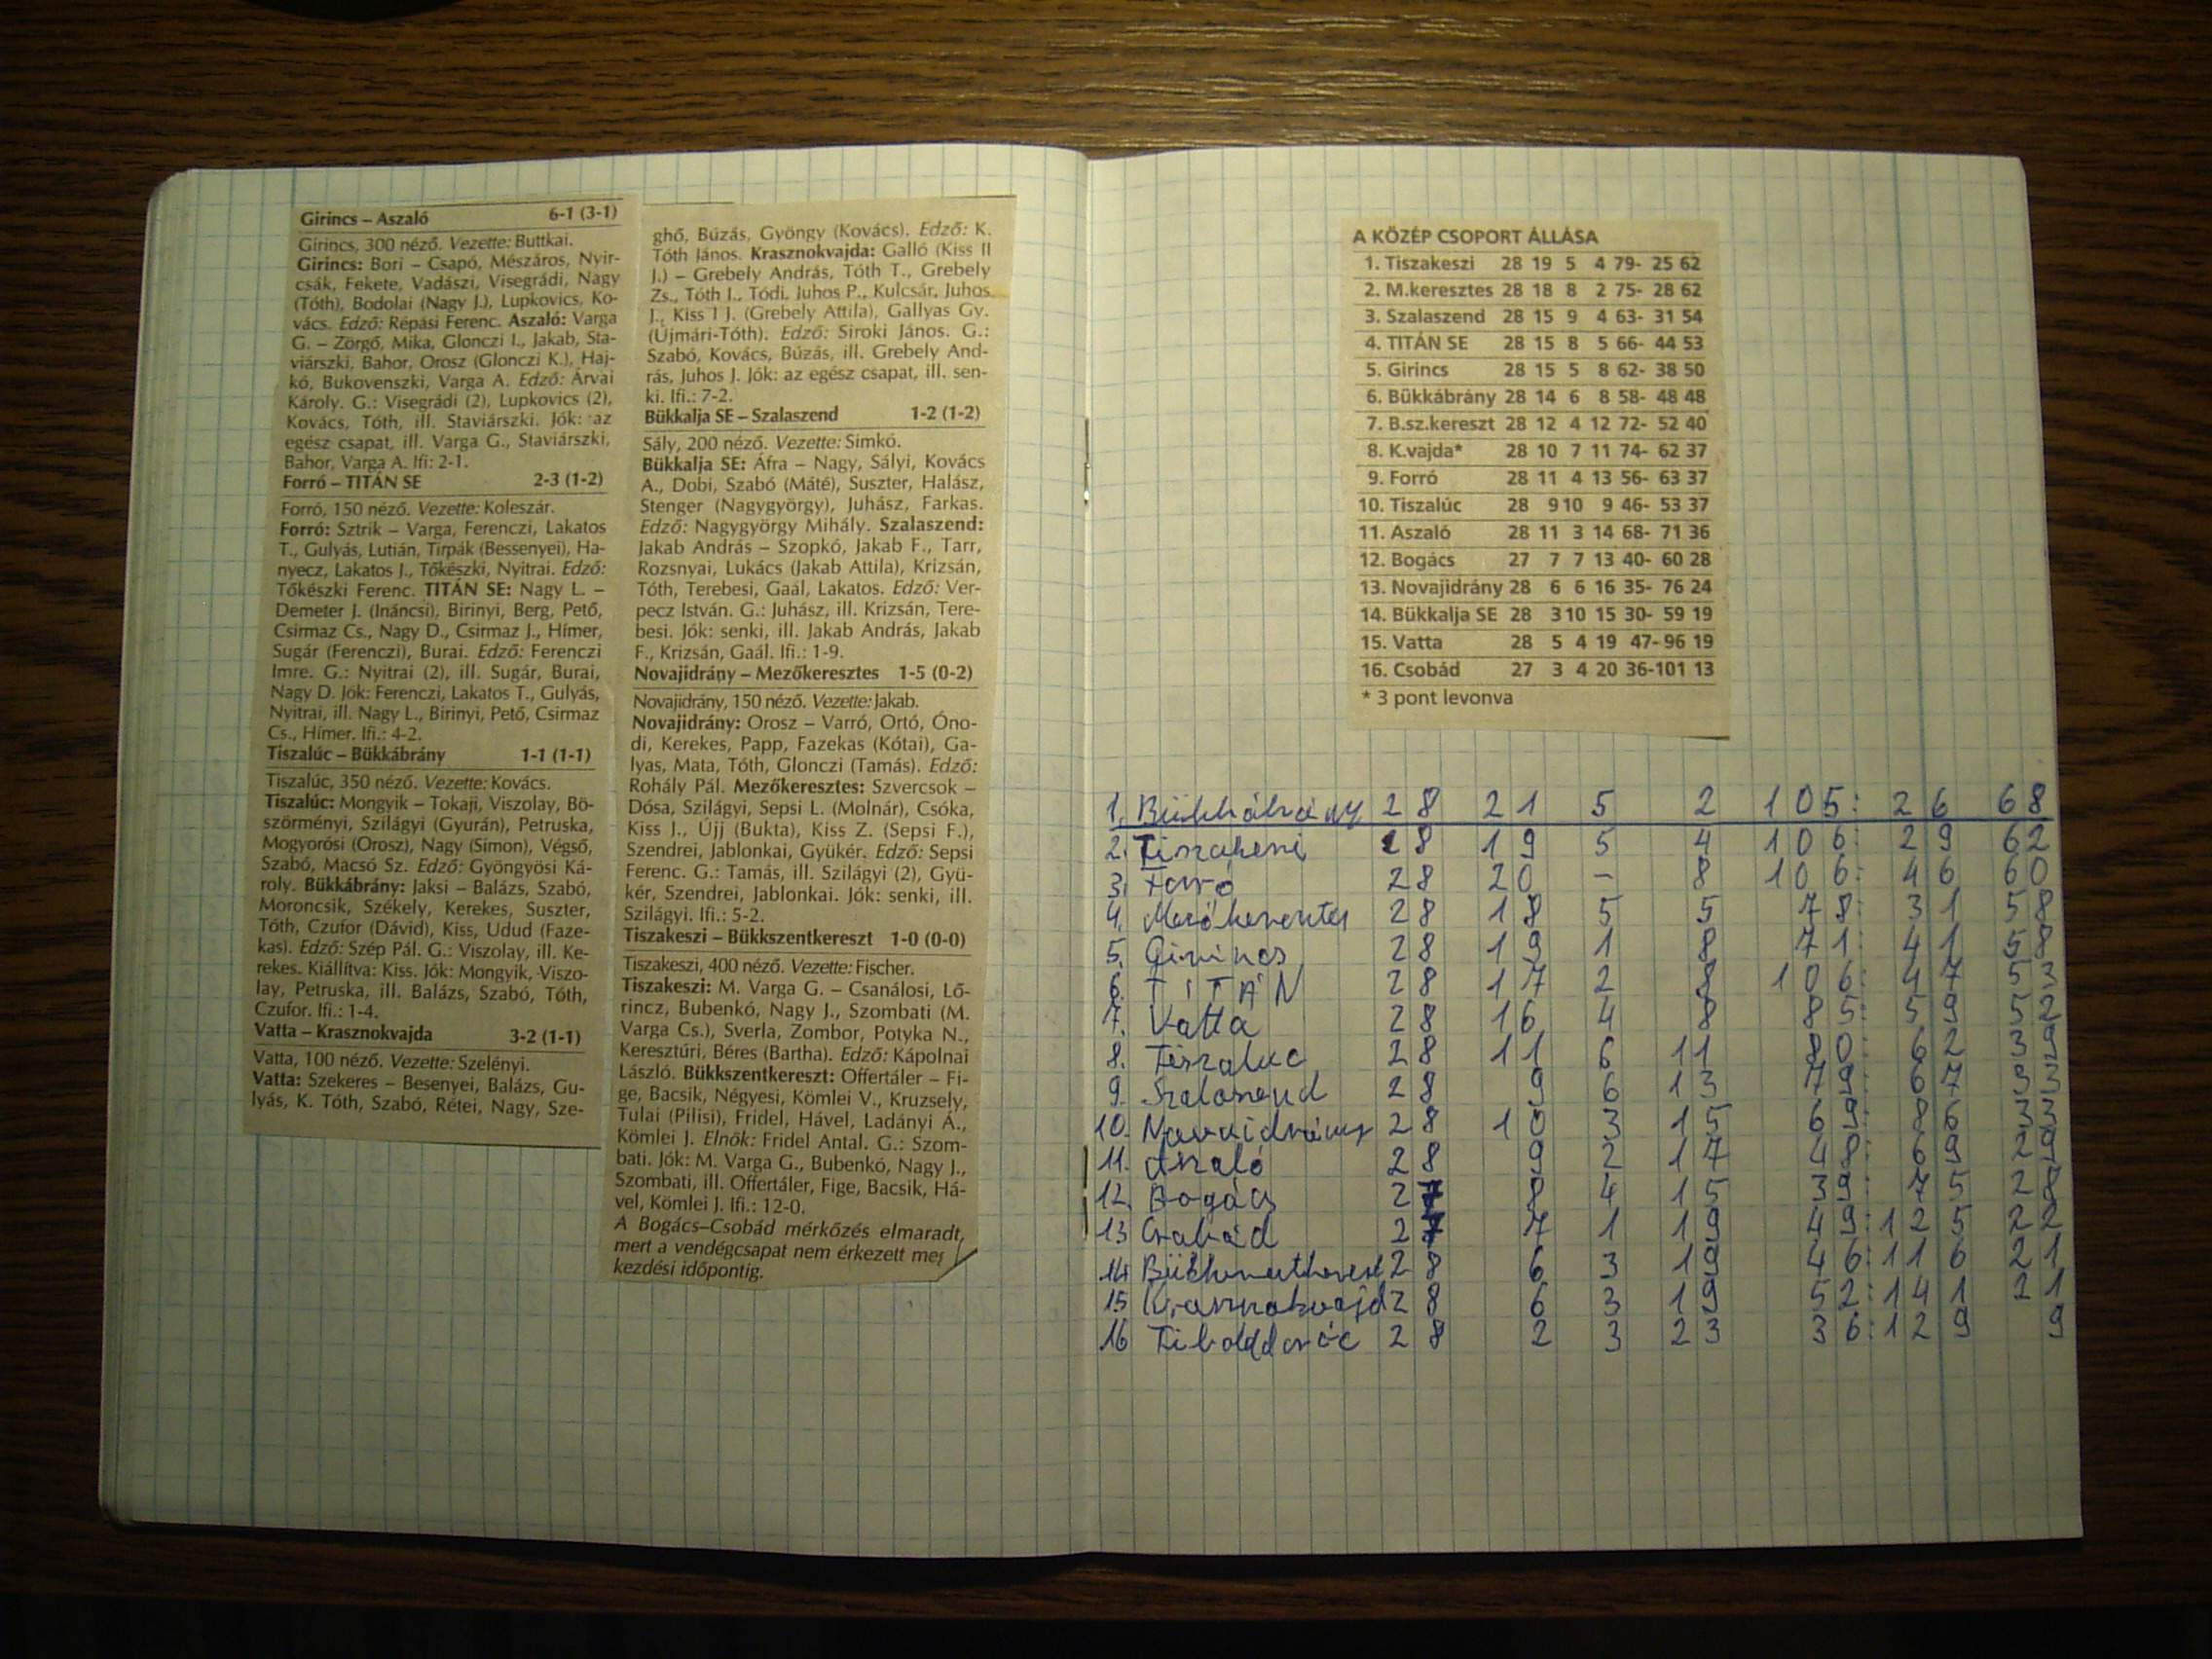 Girincs – Aszaló 6-1 (3-1)
Girincs, 300 néző. Vezette: Buttkai.
Girincs: Bori – Csapó, Mészáros, Nyir-
csák, Fekete, Vadászi, Visegrádi, Nagy
(Tóth), Bodolai (Nagy J.), Lupkovics, Ko-
vács. Edző: Répási Ferenc. Aszaló: Varga
G. – Zörgő, Mika, Glonczi I., Jakab, Sta-
viárszki, Bahor, Orosz (Glonczi K.), Haj-
kó, Bukovenszki, Varga A. Edző: Árvai
Károly. G.: Visegrádi (2), Lupkovics (2),
Kovács, Tóth, ill. Staviárszki. Jók: az
egész csapat, ill. Varga G., Staviárszki,
Bahor, Varga A. Ifi: 2-1.
Forró – TITÁN SE 2-3 (1-2)
Forró, 150 néző. Vezette: Koleszár.
Forró: Sztrik – Varga, Ferenczi, Lakatos
T., Gulyás, Lutián, Tirpák (Bessenyei), Ha-
nyecz, Lakatos J., Tőkészki, Nyitrai. Edző:
Tőkészki Ferenc. TITÁN SE: Nagy L. –
Demeter J. (Ináncsi), Birinyi, Berg, Pető,
Csirmaz Cs., Nagy D., Csirmaz J., Hímer,
Sugár (Ferenczi), Burai. Edző: Ferenczi
Imre. G.: Nyitrai (2), ill. Sugár, Burai,
Nagy D. Jók: Ferenczi, Lakatos T., Gulyás,
Nyitrai, ill. Nagy L., Birinyi, Pető, Csirmaz
Cs., Hímer. Ifi.: 4-2.
Tiszalúc – Bükkábrány 1-1 (1-1)
Tiszalúc, 350 néző. Vezette: Kovács.
Tiszalúc: Mongyik – Tokaji, Viszolay, Bö-
szörményi, Szilágyi (Gyurán), Petruska,
Mogyorósi (Orosz), Nagy (Simon), Végső,
Szabó, Macsó Sz. Edző: Gyöngyösi Ká-
roly. Bükkábrány: Jaksi – Balázs, Szabó,
Moroncsik, Székely, Kerekes, Suszter,
Tóth, Czufor (Dávid), Kiss, Udud (Faze-
kas). Edző: Szép Pál. G.: Viszolay, ill. Ke-
rekes. Kiállítva: Kiss. Jók: Mongyik, Viszo-
lay, Petruska, ill. Balázs, Szabó, Tóth,
Czufor. Ifi.: 1-4.
Vatta – Krasznokvajda 3-2 (1-1)
Vatta, 100 néző. Vezette: Szelényi.
Vatta: Szekeres – Besenyei, Balázs, Gu-
lyás, K. Tóth, Szabó, Rétei, Nagy, Sze-
ghő, Búzás, Gyöngy (Kovács). Edző: K.
Tóth János. Krasznokvajda: Galló (Kiss II
J.) – Grebely András, Tóth T., Grebely
Zs., Tóth I., Tódi, Juhos P., Kulcsár, Juhos
J., Kiss I J. (Grebely Attila), Gallyas Gy.
(Újmári-Tóth). Edző: Siroki János. G.:
Szabó, Kovács, Búzás, ill. Grebely And-
rás, Juhos J. Jók: az egész csapat, ill. sen-
ki. Ifi.: 7-2.
Bükkalja SE – Szalaszend 1-2 (1-2)
Sály, 200 néző. Vezette: Simkó.
Bükkalja SE: Áfra – Nagy, Sályi, Kovács
A., Dobi, Szabó (Máté), Suszter, Halász,
Stenger (Nagygyörgy), Juhász, Farkas.
Edző: Nagygyörgy Mihály. Szalaszend:
Jakab András – Szopkó, Jakab F., Tarr,
Rozsnyai, Lukács (Jakab Attila), Krizsán,
Tóth, Terebesi, Gaál, Lakatos. Edző: Ver-
pecz István. G.: Juhász, ill. Krizsán, Tere-
besi. Jók: senki, ill. Jakab András, Jakab
F., Krizsán, Gaál. Ifi.: 1-9.
Novajidrány – Mezőkeresztes 1-5 (0-2)
Novajidrány, 150 néző. Vezette: Jakab.
Novajidrány: Orosz – Varró, Ortó, Óno-
di, Kerekes, Papp, Fazekas (Kótai), Ga-
lyas, Mata, Tóth, Glonczi (Tamás). Edző:
Rohály Pál. Mezőkeresztes: Szvercsok –
Dósa, Szilágyi, Sepsi L. (Molnár), Csóka,
Kiss J., Újj (Bukta), Kiss Z. (Sepsi F.),
Szendrei, Jablonkai, Gyükér. Edző: Sepsi
Ferenc. G.: Tamás, ill. Szilágyi (2), Gyü-
kér, Szendrei, Jablonkai. Jók: senki, ill.
Szilágyi. Ifi.: 5-2.
Tiszakeszi – Bükkszentkereszt 1-0 (0-0)
Tiszakeszi, 400 néző. Vezette: Fischer.
Tiszakeszi: M. Varga G. – Csanálosi, Lő-
rincz, Bubenkó, Nagy J., Szombati (M.
Varga Cs.), Sverla, Zombor, Potyka N.,
Keresztúri, Béres (Bartha). Edző: Kápolnai
László. Bükkszentkereszt: Offertáler – Fi-
ge, Bacsik, Négyesi, Kömlei V., Kruzsely,
Tulai (Pilisi), Fridel, Hável, Ladányi Á.,
Kömlei J. Elnök: Fridel Antal. G.: Szom-
bati. Jók: M. Varga G., Bubenkó, Nagy J.,
Szombati, ill. Offertáler, Fige, Bacsik, Há-
vel, Kömlei J. Ifi.: 12-0.
A Bogács–Csobád mérkőzés elmaradt,
mert a vendégcsapat nem érkezett meg
kezdési időpontig.
A KÖZÉP CSOPORT ÁLLÁSA
1. Tiszakeszi 28 19 5 4 79- 25 62
2. M.keresztes 28 18 8 2 75- 28 62
3. Szalaszend 28 15 9 4 63- 31 54
4. TITÁN SE 28 15 8 5 66- 44 53
5. Girincs 28 15 5 8 62- 38 50
6. Bükkábrány 28 14 6 8 58- 48 48
7. B.sz.kereszt 28 12 4 12 72- 52 40
8. K.vajda* 28 10 7 11 74- 62 37
9. Forró 28 11 4 13 56- 63 37
10. Tiszalúc 28 9 10 9 46- 53 37
11. Aszaló 28 11 3 14 68- 71 36
12. Bogács 27 7 7 13 40- 60 28
13. Novajidrány 28 6 6 16 35- 76 24
14. Bükkalja SE 28 3 10 15 30- 59 19
15. Vatta 28 5 4 19 47- 96 19
16. Csobád 27 3 4 20 36-101 13
* 3 pont levonva
1. Bükkábrány 28 21 5 2 105: 26 68
2. Tiszakeszi 28 19 5 4 106: 29 62
3. Forró 28 20 – 8 106: 46 60
4. Mezőkeresztes 28 18 5 5 78: 31 58
5. Girincs 28 19 1 8 71: 41 58
6. TITÁN 28 17 2 8 106: 47 53
7. Vatta 28 16 4 8 85: 59 52
8. Tiszaluc 28 11 6 11 80: 62 39
9. Szalaszend 28 9 6 13 79: 67 33
10. Novajidrány 28 10 3 15 69: 86 33
11. Aszaló 28 9 2 17 48: 69 29
12. Bogács 27 8 4 15 39: 75 28
13 Csobád 27 7 1 19 49:125 22
14. Bükkszentkereszt 28 6 3 19 46:116 21
15 Krasznokvajd 28 6 3 19 52:141 21
16 Tibolddaróc 28 2 3 23 36:129 9